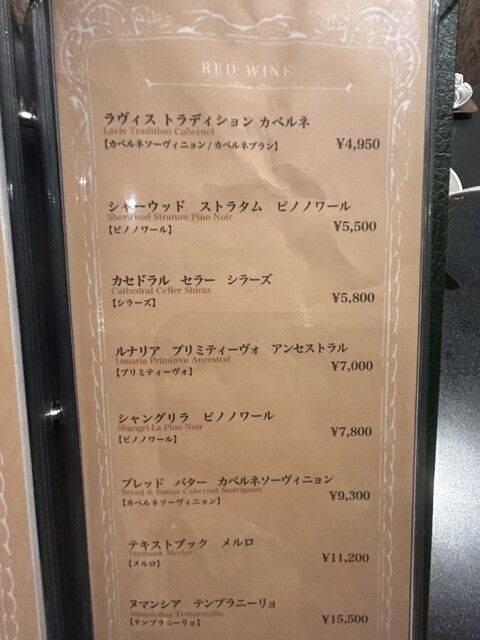 RED WINE
ラヴィス トラディション カベルネ
Lavis Tradition Cabernet
【カベルネソーヴィニョン / カベルネブラン】 ¥4,950
シャーウッド ストラタム ピノノワール
Sherwood Stratum Pino Noir
【ピノノワール】 ¥5,500
カセドラル セラー シラーズ
Cathedral Celler Shiraz
【シラーズ】 ¥5,800
ルナリア プリミティーヴォ アンセストラル
Lunaria Primitivo Ancestral
【プリミティーヴォ】 ¥7,000
シャングリラ ピノノワール
Shangri-La Pino Noir
【ピノノワール】 ¥7,800
ブレッド バター カベルネソーヴィニョン
Bread & Butter Cabernet Sauvignon
【カベルネソーヴィニョン】 ¥9,300
テキストブック メルロ
Textbook Merlot
【メルロ】 ¥11,200
ヌマンシア テンプラニーリョ
Numanthia Tempranillo
【テンプラニーリョ】 ¥15,500